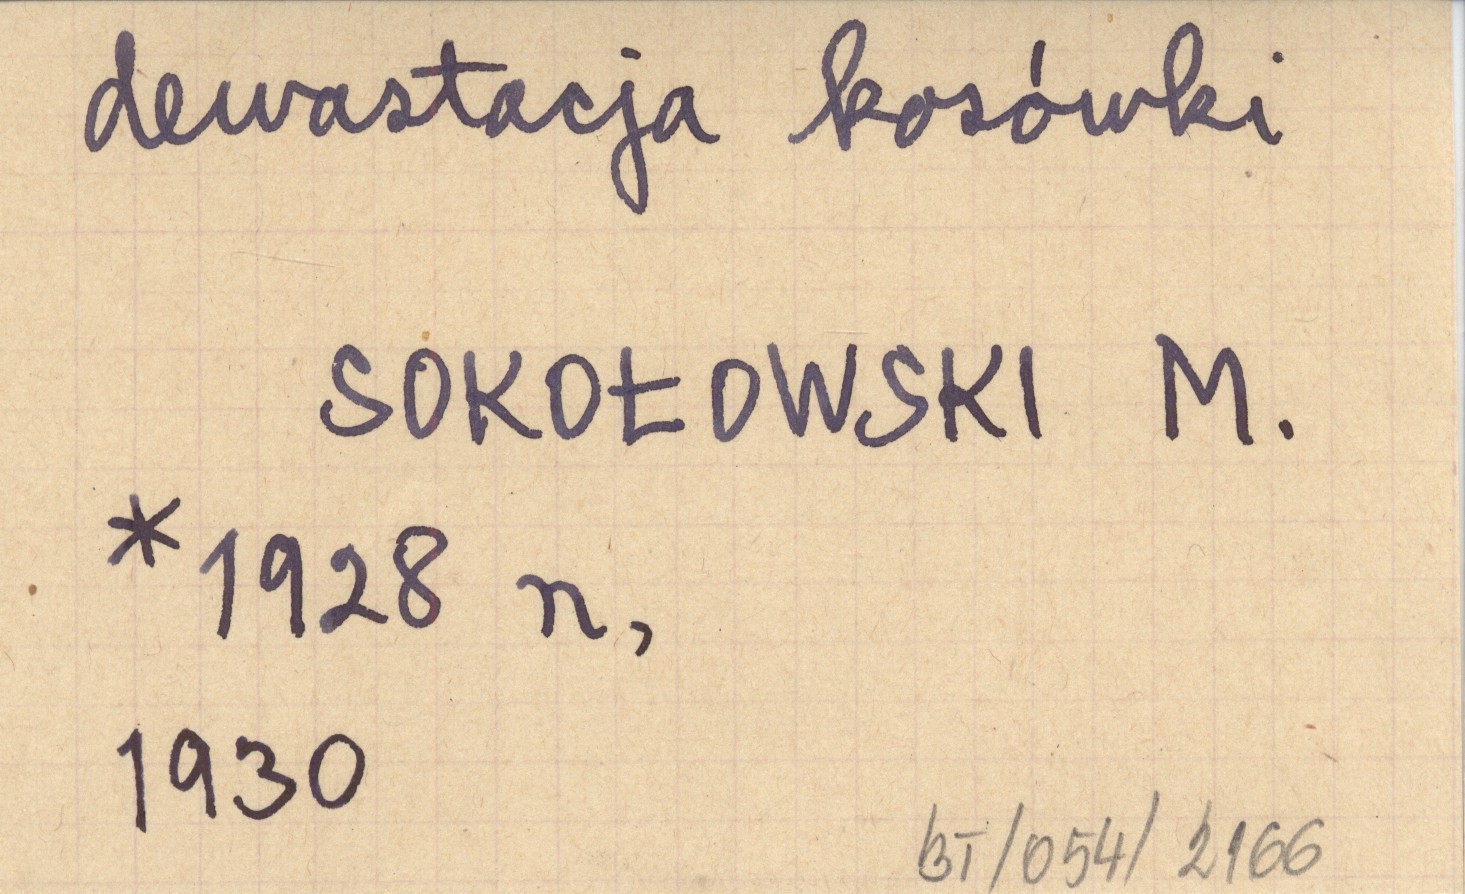 dewastacja kosówki
SOKOŁOWSKI M.
*1928 n,
1930
BT/054/2166